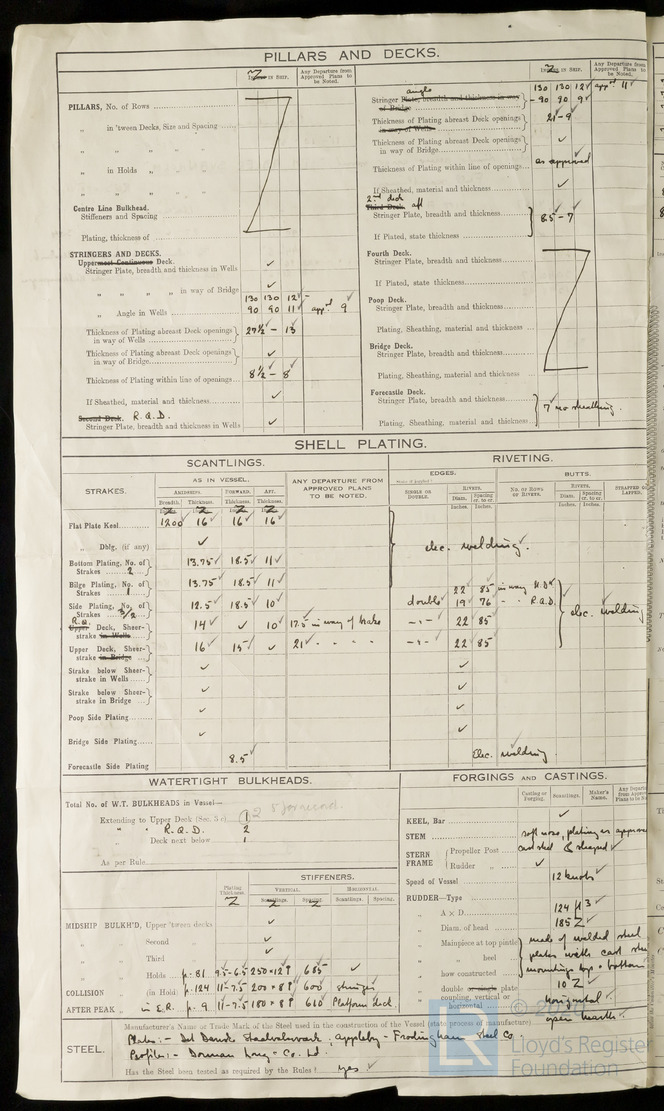 PILLARS AND DECKS.
IN SHIP.
Any Departure from Approved Plans to be Noted.
PILLARS, No. of Rows
„ in 'tween Decks, Size and Spacing
„ „ „ „
„ in Holds „ „
„ „ „ „
Centre Line Bulkhead.
Stiffeners and Spacing
Plating, thickness of
STRINGERS AND DECKS.
Uppermost Continuous Deck.
Stringer Plate, breadth and thickness in Wells ✓
„ „ „ „ in way of Bridge ✓
130 130 12 ✓ -
„ Angle in Wells 90 90 11 ✓ app'd 9 ✓
Thickness of Plating abreast Deck openings in way of Wells 27½ - 13
Thickness of Plating abreast Deck openings in way of Bridge ✓
Thickness of Plating within line of openings 8½ - 8
If Sheathed, material and thickness ✓
Second Deck. R.Q.D.
Stringer Plate, breadth and thickness in Wells ✓
IN SHIP.
Any Departure from Approved Plans to be Noted.
angle 130 130 12 ✓ app'd 11 ✓
Stringer Plate, breadth and thickness in way of Bridge - 90 90 9 ✓
Thickness of Plating abreast Deck openings in way of Wells 21 - 9
Thickness of Plating abreast Deck openings in way of Bridge ✓
Thickness of Plating within line of openings as approved
If Sheathed, material and thickness ✓
2nd deck
Third Deck. aft
Stringer Plate, breadth and thickness 85 - 7
If Plated, state thickness
Fourth Deck.
Stringer Plate, breadth and thickness
If Plated, state thickness
Poop Deck.
Stringer Plate, breadth and thickness
Plating, Sheathing, material and thickness
Bridge Deck.
Stringer Plate, breadth and thickness
Plating, Sheathing, material and thickness
Forecastle Deck.
Stringer Plate, breadth and thickness
7 ✓ no sheathing.
Plating, Sheathing, material and thickness
SHELL PLATING.
SCANTLINGS. RIVETING.
STRAKES.
AS IN VESSEL.
AMIDSHIPS. FORWARD. AFT.
Breadth. Thickness. Thickness. Thickness.
ANY DEPARTURE FROM APPROVED PLANS TO BE NOTED.
EDGES. BUTTS.
SINGLE OR DOUBLE.
RIVETS.
Diam. Spacing cr. to cr.
No. OF ROWS OF RIVETS.
RIVETS.
Diam. Spacing cr. to cr.
STRAPPED OR LAPPED.
Inches. Inches. Inches. Inches.
Flat Plate Keel 1200 16 ✓ 16 ✓ 16 ✓
„ Dblg. (if any) ✓
elec. welding.
Bottom Plating, No. of Strakes 2 13.75 ✓ 18.5 ✓ 11 ✓
Bilge Plating, No. of Strakes 1 13.75 ✓ 18.5 ✓ 11 ✓
22 85 in way U.D.
Side Plating, No. of Strakes 3/2 12.5 ✓ 18.5 ✓ 10 ✓ double 19 76 „ „ R.Q.D. elec. welding
R.Q.
Upper Deck, Sheer-strake in Wells 14 ✓ ✓ 10 ✓ 17.5 in way of brake -„- 22 85
Upper Deck, Sheer-strake in Bridge 16 ✓ 15 ✓ ✓ 21 ✓ „ „ „ -„- 22 85
Strake below Sheer-strake in Wells ✓ ✓
Strake below Sheer-strake in Bridge ✓ ✓
Poop Side Plating ✓ ✓
Bridge Side Plating ✓ ✓
Forecastle Side Plating 8.5 ✓ Elec. welding.
WATERTIGHT BULKHEADS.
Total No. of W.T. BULKHEADS in Vessel—
Extending to Upper Deck (Sec. 3 c) 1
„ „ R.Q.D. 2
„ Deck next below 1
As per Rule
STIFFENERS.
Plating Thickness.
VERTICAL. HORIZONTAL.
Scantlings. Spacing. Scantlings. Spacing.
MIDSHIP BULKH'D, Upper 'tween decks ✓
„ „ Second „ ✓
„ „ Third „ ✓
„ „ Holds p. 81 9.5-6.5 250 x 12 P 685 ✓
COLLISION „ (in Hold) p. 124 11-7.5 200 x 8 P 600 stringer
AFTER PEAK „ in E.R. p. 9 11-7.5 180 x 8 P 610 Platform deck
FORGINGS AND CASTINGS.
Casting or Forging. Scantlings. Maker's Name. Any Departure from Approved Plans to be Noted
KEEL, Bar ✓
STEM soft nose, plating as approved
STERN FRAME
Propeller Post cast steel & shaped ✓
Rudder „ ✓
Speed of Vessel 12 knots ✓
RUDDER—Type
„ A × D 124
„ Diam. of head 185
„ Mainpiece at top pintle made of welded steel
„ „ heel plates with cast steel
„ how constructed mountings top & bottom
„ double or single plate 10
„ coupling, vertical or horizontal horizontal ✓
STEEL.
Manufacturer's Name or Trade Mark of the Steel used in the construction of the Vessel (state process of manufacture) open hearth ✓
Plates:- Det Danske Staalvalsevaerk, Appleby-Frodingham Steel Co.
Profiles:- Dorman Long & Co. Ld.
Has the Steel been tested as required by the Rules? yes ✓
LR
Lloyd's Register
Foundation